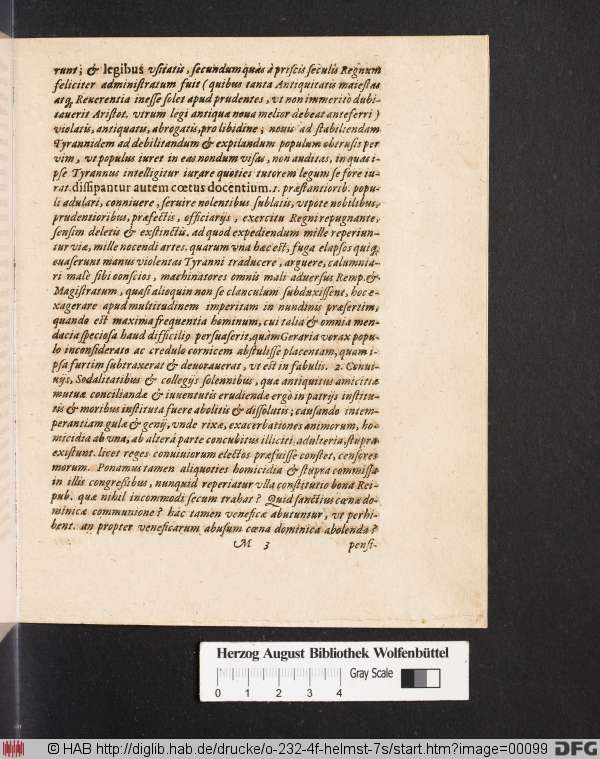 runt; & legibus vsitatis, secundum quas à priscis seculis Regnum
feliciter administratum fuit (quibus tanta Antiquitatis maiestas
atq, Reuerentia inesse solet apud prudentes, vt non immeritò dubi-
tauerit Aristot. vtrum legi antiqua noua melior debeat anteferri)
violatis, antiquatis, abrogatis, pro libidine; nouis ad stabiliendam
Tyrannidem ad debilitandum & expilandum populum obtrusis per
vim, vt populus iuret in eas nondum visas, non auditas, in quas i-
pse Tyrannus intelligitur iurare quoties tutorem legum se fore iu-
rat. dissipantur autem cœtus docentium. 1. præstantiorib. popu-
li adulari, conniuere, seruire nolentibus sublatis, vtpote nobilibus,
prudentioribus, præfectis, officiarijs, exercitu Regni repugnante,
sensim deletis & exstinctis. ad quod expediendum mille reperiun-
tur viæ, mille nocendi artes. quarum vna hæc est, fuga elapsos quiq,
euaserunt manus violentas Tyranni traducere, arguere, calumnia-
ri malè sibi conscios, machinatores omnis mali aduersus Remp. &
Magistratum, quasi alioquin non se clanculum subduxissent, hoc e-
xagerare apud multitudinem imperitam in nundinis præsertim,
quando est maxima frequentia hominum, cui talia & omnia men-
dacia speciosa haud difficiliq persuaserit, quàm Geraria vorax popu-
lo inconsiderato ac credulo cornicem abstulisse placentam, quam i-
psa furtim subtraxerat & deuorauerat, vt est in fabulis. 2. Conui-
uijs, Sodalitatibus & collegijs solennibus, quæ antiquitus amicitiæ
mutuæ conciliandæ & iuuentutis erudiendæ ergò in patrijs institu-
tis & moribus instituta fuere abolitis & dissolutis; causando intem-
perantiam gulæ & genij, vnde rixæ, exacerbationes animorum, ho-
micidia ab vna, ab altera parte concubitus illiciti, adulteria, stupra
existunt. licet reges conuiuiorum electos præfuisse constet, censores
morum. Ponamus tamen aliquoties homicidia & stupra commissa
in illis congressibus, nunquid reperiatur vlla constitutio bona Rei-
pub. quæ nihil incommodi secum trahat? Quid sanctius cœna do-
minicæ communione? hac tamen veneficæ abutuntur, vt perhi-
bent. an propter veneficarum abusum cœna dominica abolenda?
M 3 pensi-
Herzog August Bibliothek Wolfenbüttel
Gray Scale
0 1 2 3 4
© HAB http://diglib.hab.de/drucke/o-232-4f-helmst-7s/start.htm?image=00099 DFG